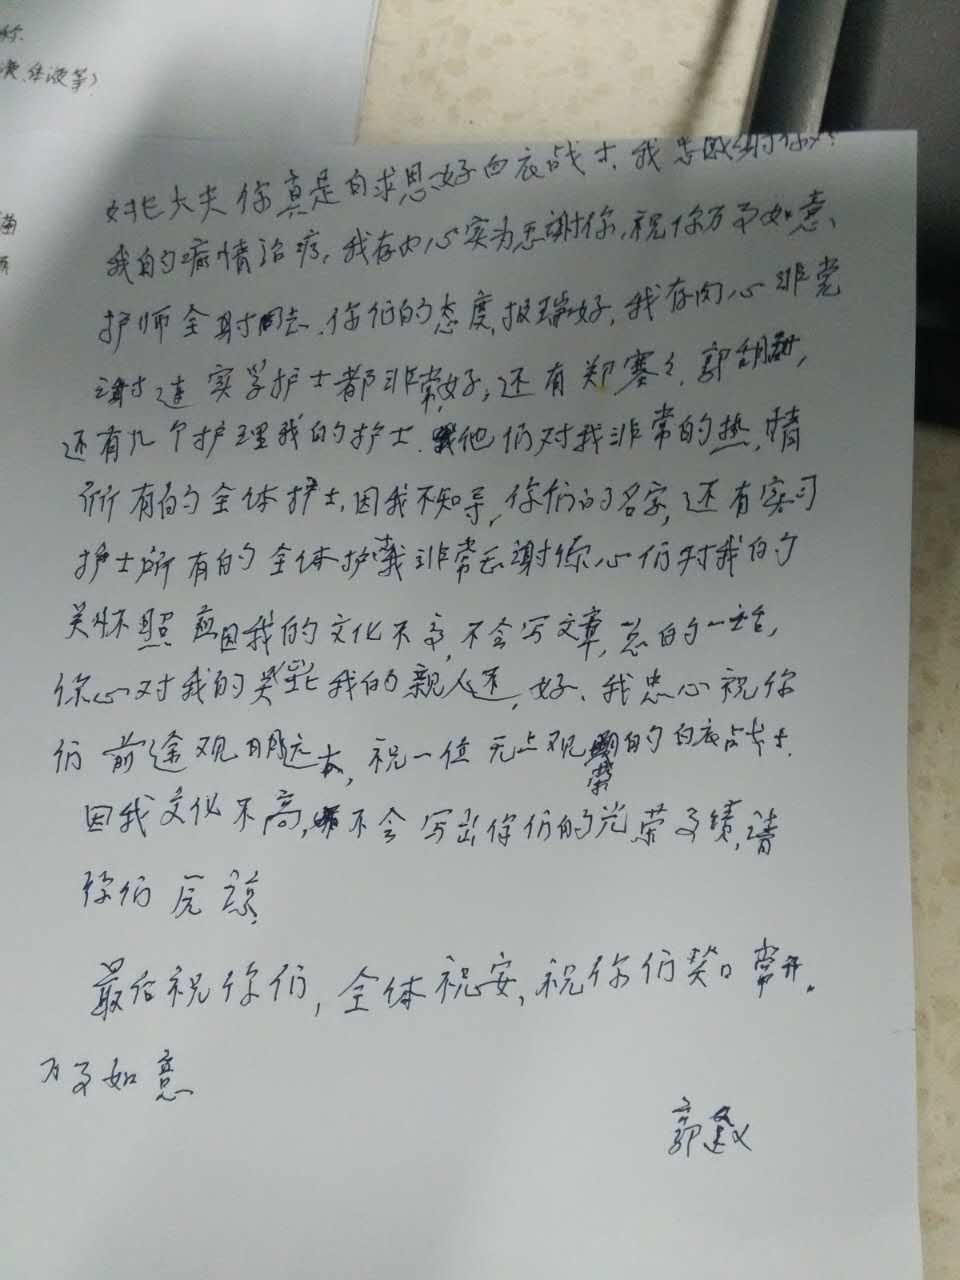 称
液等)
大夫你真是白求思好白衣战士.我忠感谢你对
我的病情治疗,我存内心实为感谢你,祝你万事如意、
护师全射同志.你们的态度报好,我存内心非党
谢连实学护士都非常好,还有郑寒々.郭
还有几个护理我的护士.他们对我非常的热情
所有的全体护士,因我不知导,你们的名字,还有实习
护士所有的全体护我非常感谢你心们对我的
关怀照应因我的文化不高,不会写文章,总的一
你心对我的我的親人还,好、我忠心祝你
们前途观明远大,祝一位无上观荣的白衣战士.
因我文化不高,不会写出你们的光荣事绩,请
你们原谅,
最后祝你们,全体祝安,祝你们笑口常开.
万事如意
郭